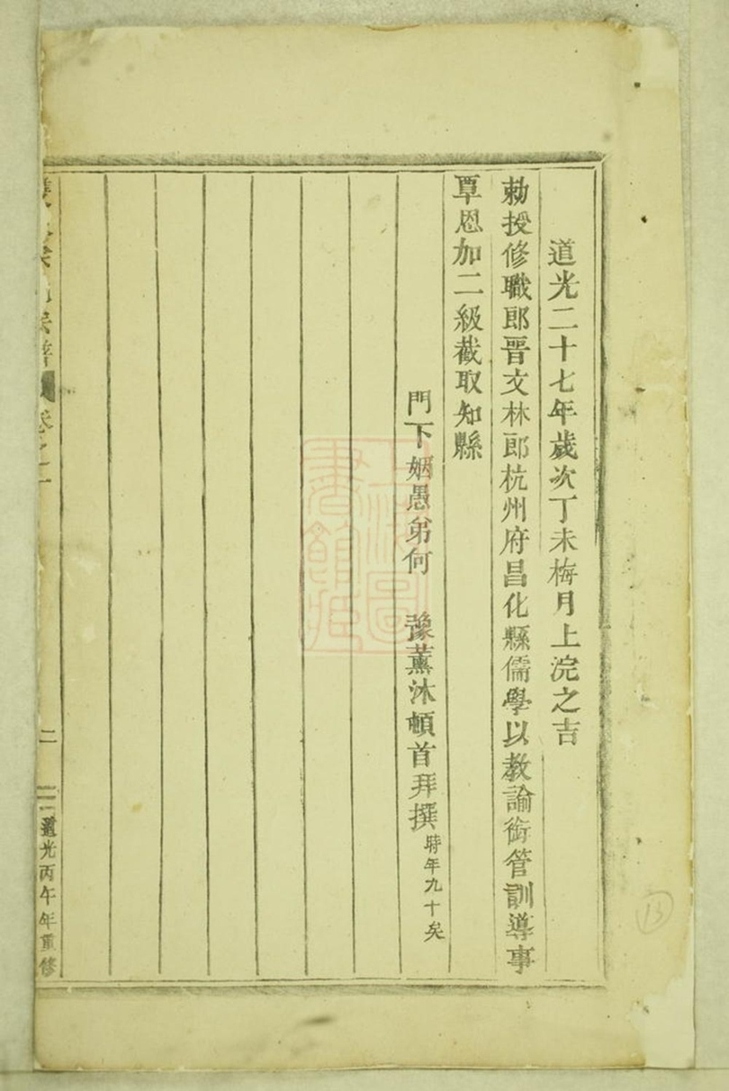 道光二十七年歲次丁未梅月上浣之吉
勅授修職郎晋文林郎杭州府昌化縣儒學以教諭銜管訓導事
覃恩加二級截取知縣
門下姻愚弟何　豫薰沐頓首拜撰時年九十矣
卷之一
二
道光丙午年重修
13